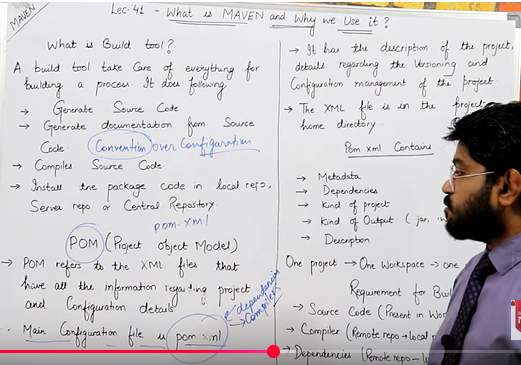 MAVEN
Lec-41 - What is MAVEN and Why we Use it?
What is Build tool?
A build tool take Care of everything for
building a process. It does following
→ Generate Source Code
→ Generate documentation from Source
Code
Convention over Configuration
→ Compiles Source Code
→ Install the package code in local repo,
Server repo or Central Repository.
pom.xml
POM (Project Object Model)
→ POM refers to the XML files that
have all the information regarding project
and Configuration details
→ dependencies
→ Compiler
Main Configuration file is pom.xml
→ It has the description of the project,
details regarding the Versioning and
Configuration management of the project
→ The XML file is in the project
home directory.
Pom xml Contains
→ Metadata
→ Dependencies
→ Kind of project
→ Kind of Output (jar,
→ Description
One project → One Workspace → one
Requirement for
→ Source Code (Present in
→ Compiler (Remote repo → local
→ Dependencies (Remote repo →